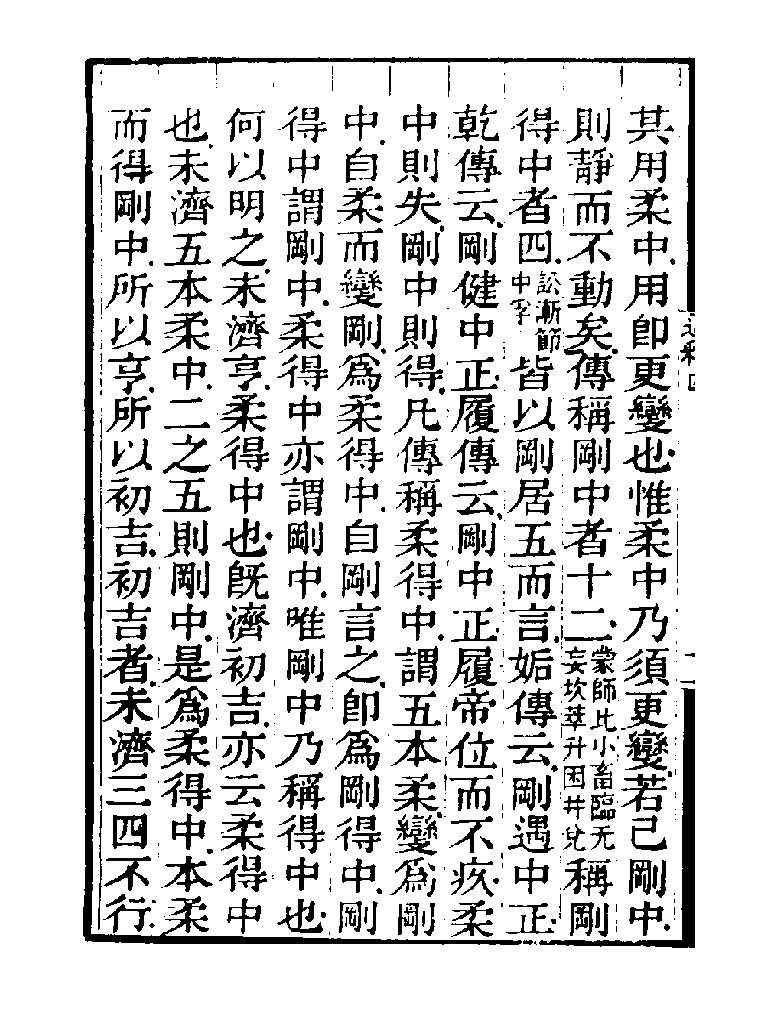 其用柔中用卽更變也惟柔中乃須更變若己剛中
則靜而不動矣傳稱剛中者十二蒙師比小畜臨无妄坎萃升困井兌稱剛
得中者四訟漸節中孚皆以剛居五而言姤傳云剛遇中正
乾傳云剛健中正履傳云剛中正履帝位而不疚柔
中則失剛中則得凡傳稱柔得中謂五本柔變爲剛
中自柔而變剛爲柔得中自剛言之卽爲剛得中剛
得中謂剛中柔得中亦謂剛中唯剛中乃稱得中也
何以明之未濟亨柔得中也旣濟初吉亦云柔得中
也未濟五本柔中二之五則剛中是爲柔得中本柔
而得剛中所以亨所以初吉初吉者未濟三四不行